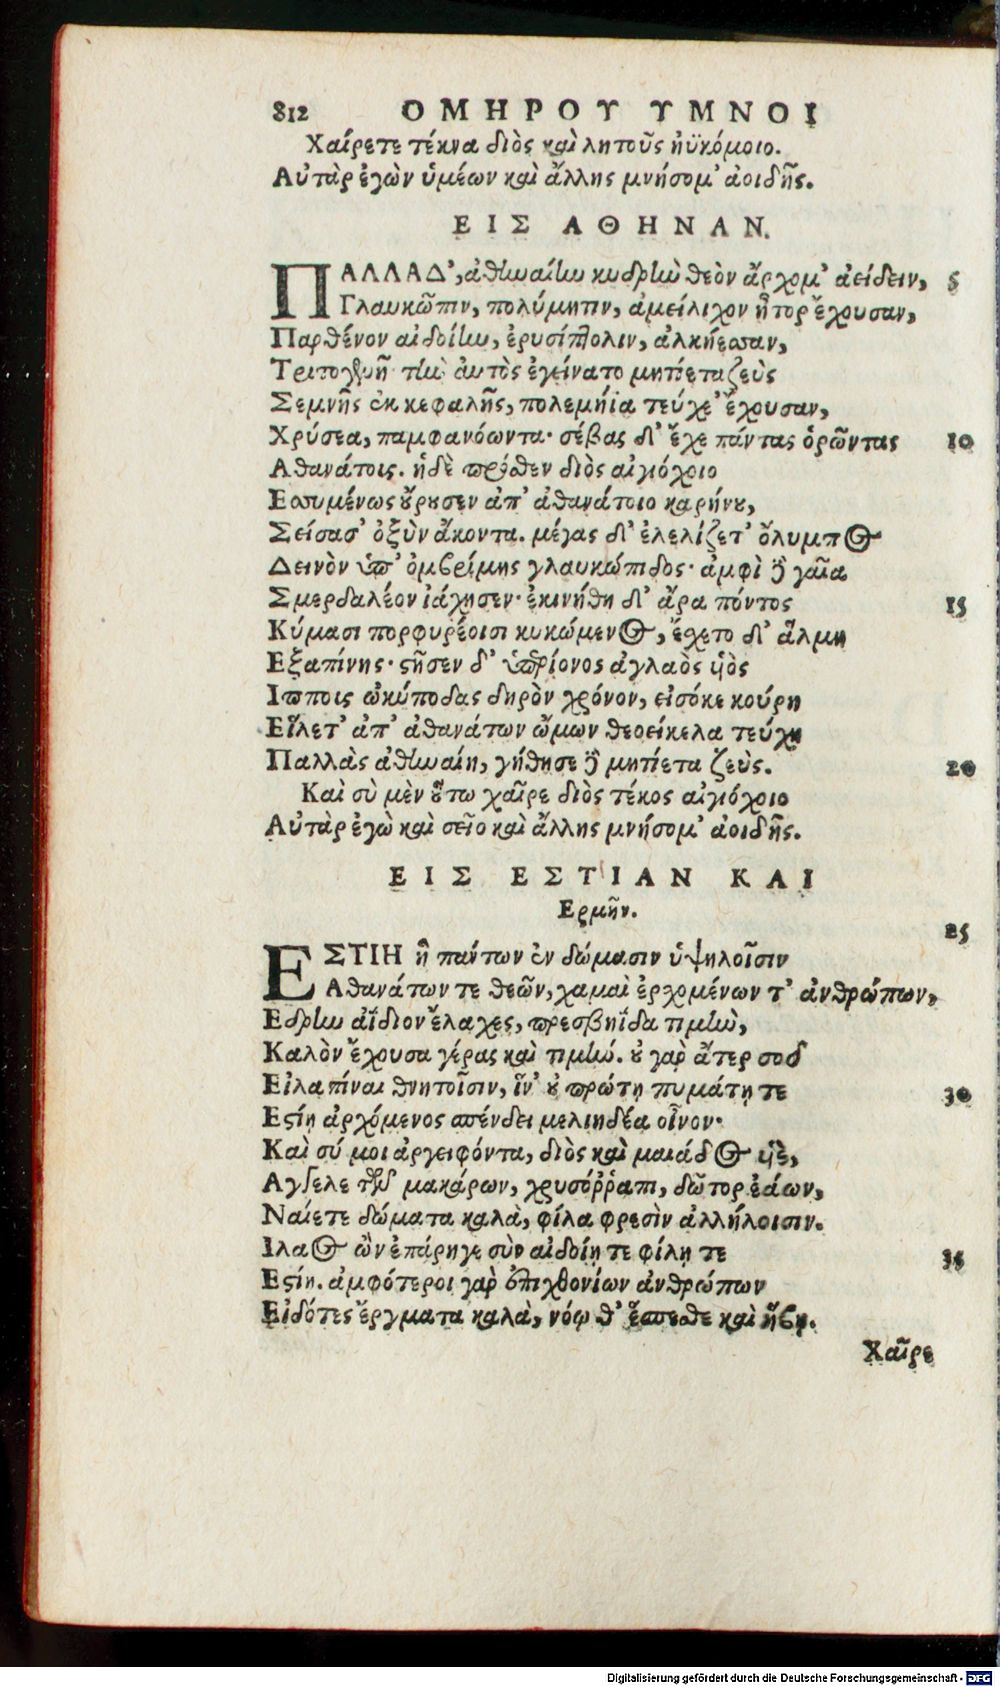 812 ΟΜΗΡΟΥ ΥΜΝΟΙ
Χαίρετε τέκνα διὸς καὶ λητοῦς ἠϋκόμοιο.
Αὐτὰρ ἐγὼν ὑμέων καὶ ἄλλης μνήσομ' ἀοιδῆς.
ΕΙΣ ΑΘΗΝΑΝ.
ΠΑΛΛΑΔ', ἀθηναίην κυδρὴν θεὸν ἄρχομ' ἀείδειν, 5
Γλαυκῶπιν, πολύμητιν, ἀμείλιχον ἦτορ ἔχουσαν,
Παρθένον αἰδοίην, ἐρυσίπτολιν, ἀλκήεσσαν,
Τριτογενῆ· τὴν αὐτὸς ἐγείνατο μητίετα ζεὺς
Σεμνῆς ἐκ κεφαλῆς, πολεμήϊα τεύχε' ἔχουσαν,
Χρύσεα, παμφανόωντα· σέβας δ' ἔχε πάντας ὁρῶντας 10
Αθανάτοις. ἡ δὲ πρόσθεν διὸς αἰγιόχοιο
Εσσυμένως ὤρουσεν ἀπ' ἀθανάτοιο καρήνου,
Σείσασ' ὀξὺν ἄκοντα. μέγας δ' ἐλελίζετ' ὄλυμπος
Δεινὸν ὑπ' ὀμβρίμης γλαυκώπιδος· ἀμφὶ δὲ γαῖα
Σμερδαλέον ἰάχησεν· ἐκινήθη δ' ἄρα πόντος 15
Κύμασι πορφυρέοισι κυκώμενος, ἔσχετο δ' ἅλμη
Εξαπίνης· στῆσεν δ' ὑπερίονος ἀγλαὸς υἱὸς
Ιπποις ὠκύποδας δηρὸν χρόνον, εἰσόκε κούρη
Εἵλετ' ἀπ' ἀθανάτων ὤμων θεοείκελα τεύχη
Παλλὰς ἀθηναίη, γήθησε δὲ μητίετα ζεύς. 20
Καὶ σὺ μὲν οὕτω χαῖρε διὸς τέκος αἰγιόχοιο
Αὐτὰρ ἐγὼ καὶ σεῖο καὶ ἄλλης μνήσομ' ἀοιδῆς.
ΕΙΣ ΕΣΤΙΑΝ ΚΑΙ
Ερμῆν.
ΕΣΤΙΗ ἣ πάντων ἐν δώμασιν ὑψηλοῖσιν 25
Αθανάτων τε θεῶν, χαμαὶ ἐρχομένων τ' ἀνθρώπων,
Εδρην ἀΐδιον ἔλαχες, πρεσβηΐδα τιμὴν,
Καλὸν ἔχουσα γέρας καὶ τιμήν. οὐ γὰρ ἄτερ σοῦ
Εἰλαπίναι θνητοῖσιν, ἵν' οὐ πρώτῃ πυμάτῃ τε 30
Εστίῃ ἀρχόμενος σπένδει μελιηδέα οἶνον·
Καὶ σύ μοι ἀργειφόντα, διὸς καὶ μαιάδος υἱὲ,
Αγγελε τῶν μακάρων, χρυσόῤῥαπι, δῶτορ ἐάων,
Ναίετε δώματα καλὰ, φίλα φρεσὶν ἀλλήλοισιν.
Ιλαος ὢν ἐπάρηγε σὺν αἰδοίῃ τε φίλῃ τε 35
Εστίῃ. ἀμφότεροι γὰρ ἐπιχθονίων ἀνθρώπων
Εἰδότες ἔργματα καλὰ, νόῳ θ' ἕσπεσθε καὶ ἥβῃ.
Χαῖρε
Digitalisierung gefördert durch die Deutsche Forschungsgemeinschaft - DFG